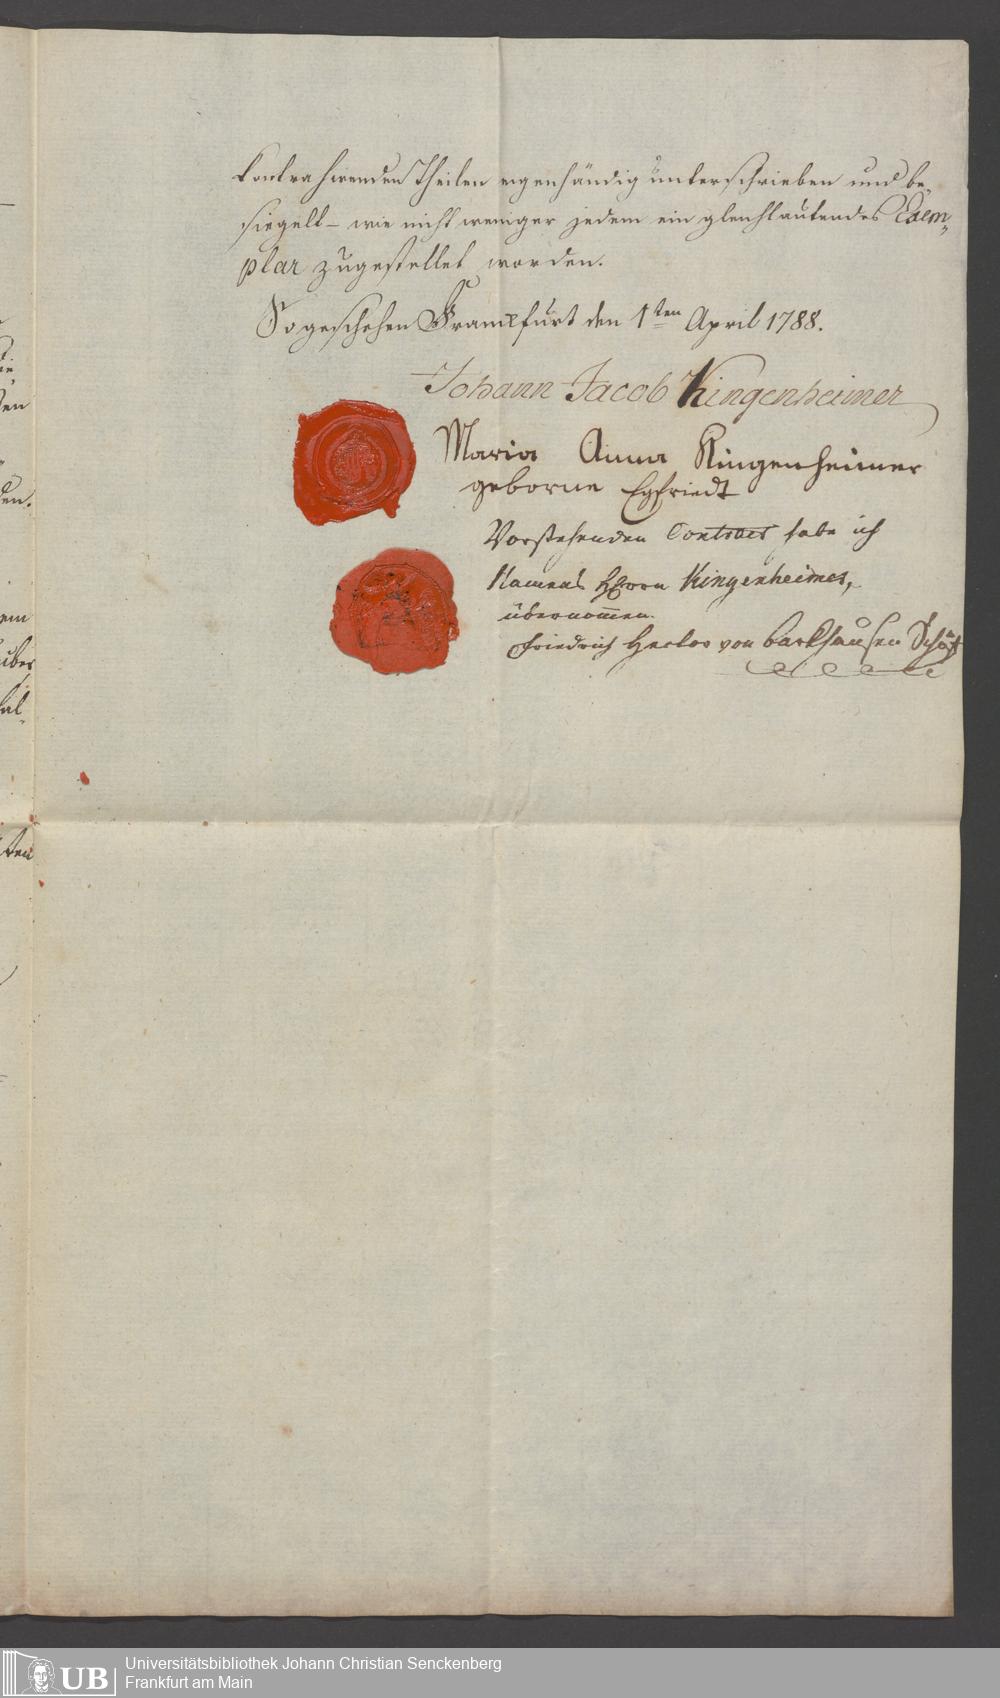 kontrahirenden Theilen eigenhändig unterschrieben und be-
siegelt – wie nicht weniger jedem ein gleichlautendes Exem-
plar zugestellet worden.
So geschehen Frankfurt den 1ten April 1788.
Johann Jacob Kingenheimer
Maria Anna Kingenheimer
geborne Egfriedt
Vorstehenden Contract habe ich
Namens Herrn Kingenheimer,
übernommen.
Friedrich Hector von Barkhausen
den.
über
UB
Universitätsbibliothek Johann Christian Senckenberg
Frankfurt am Main